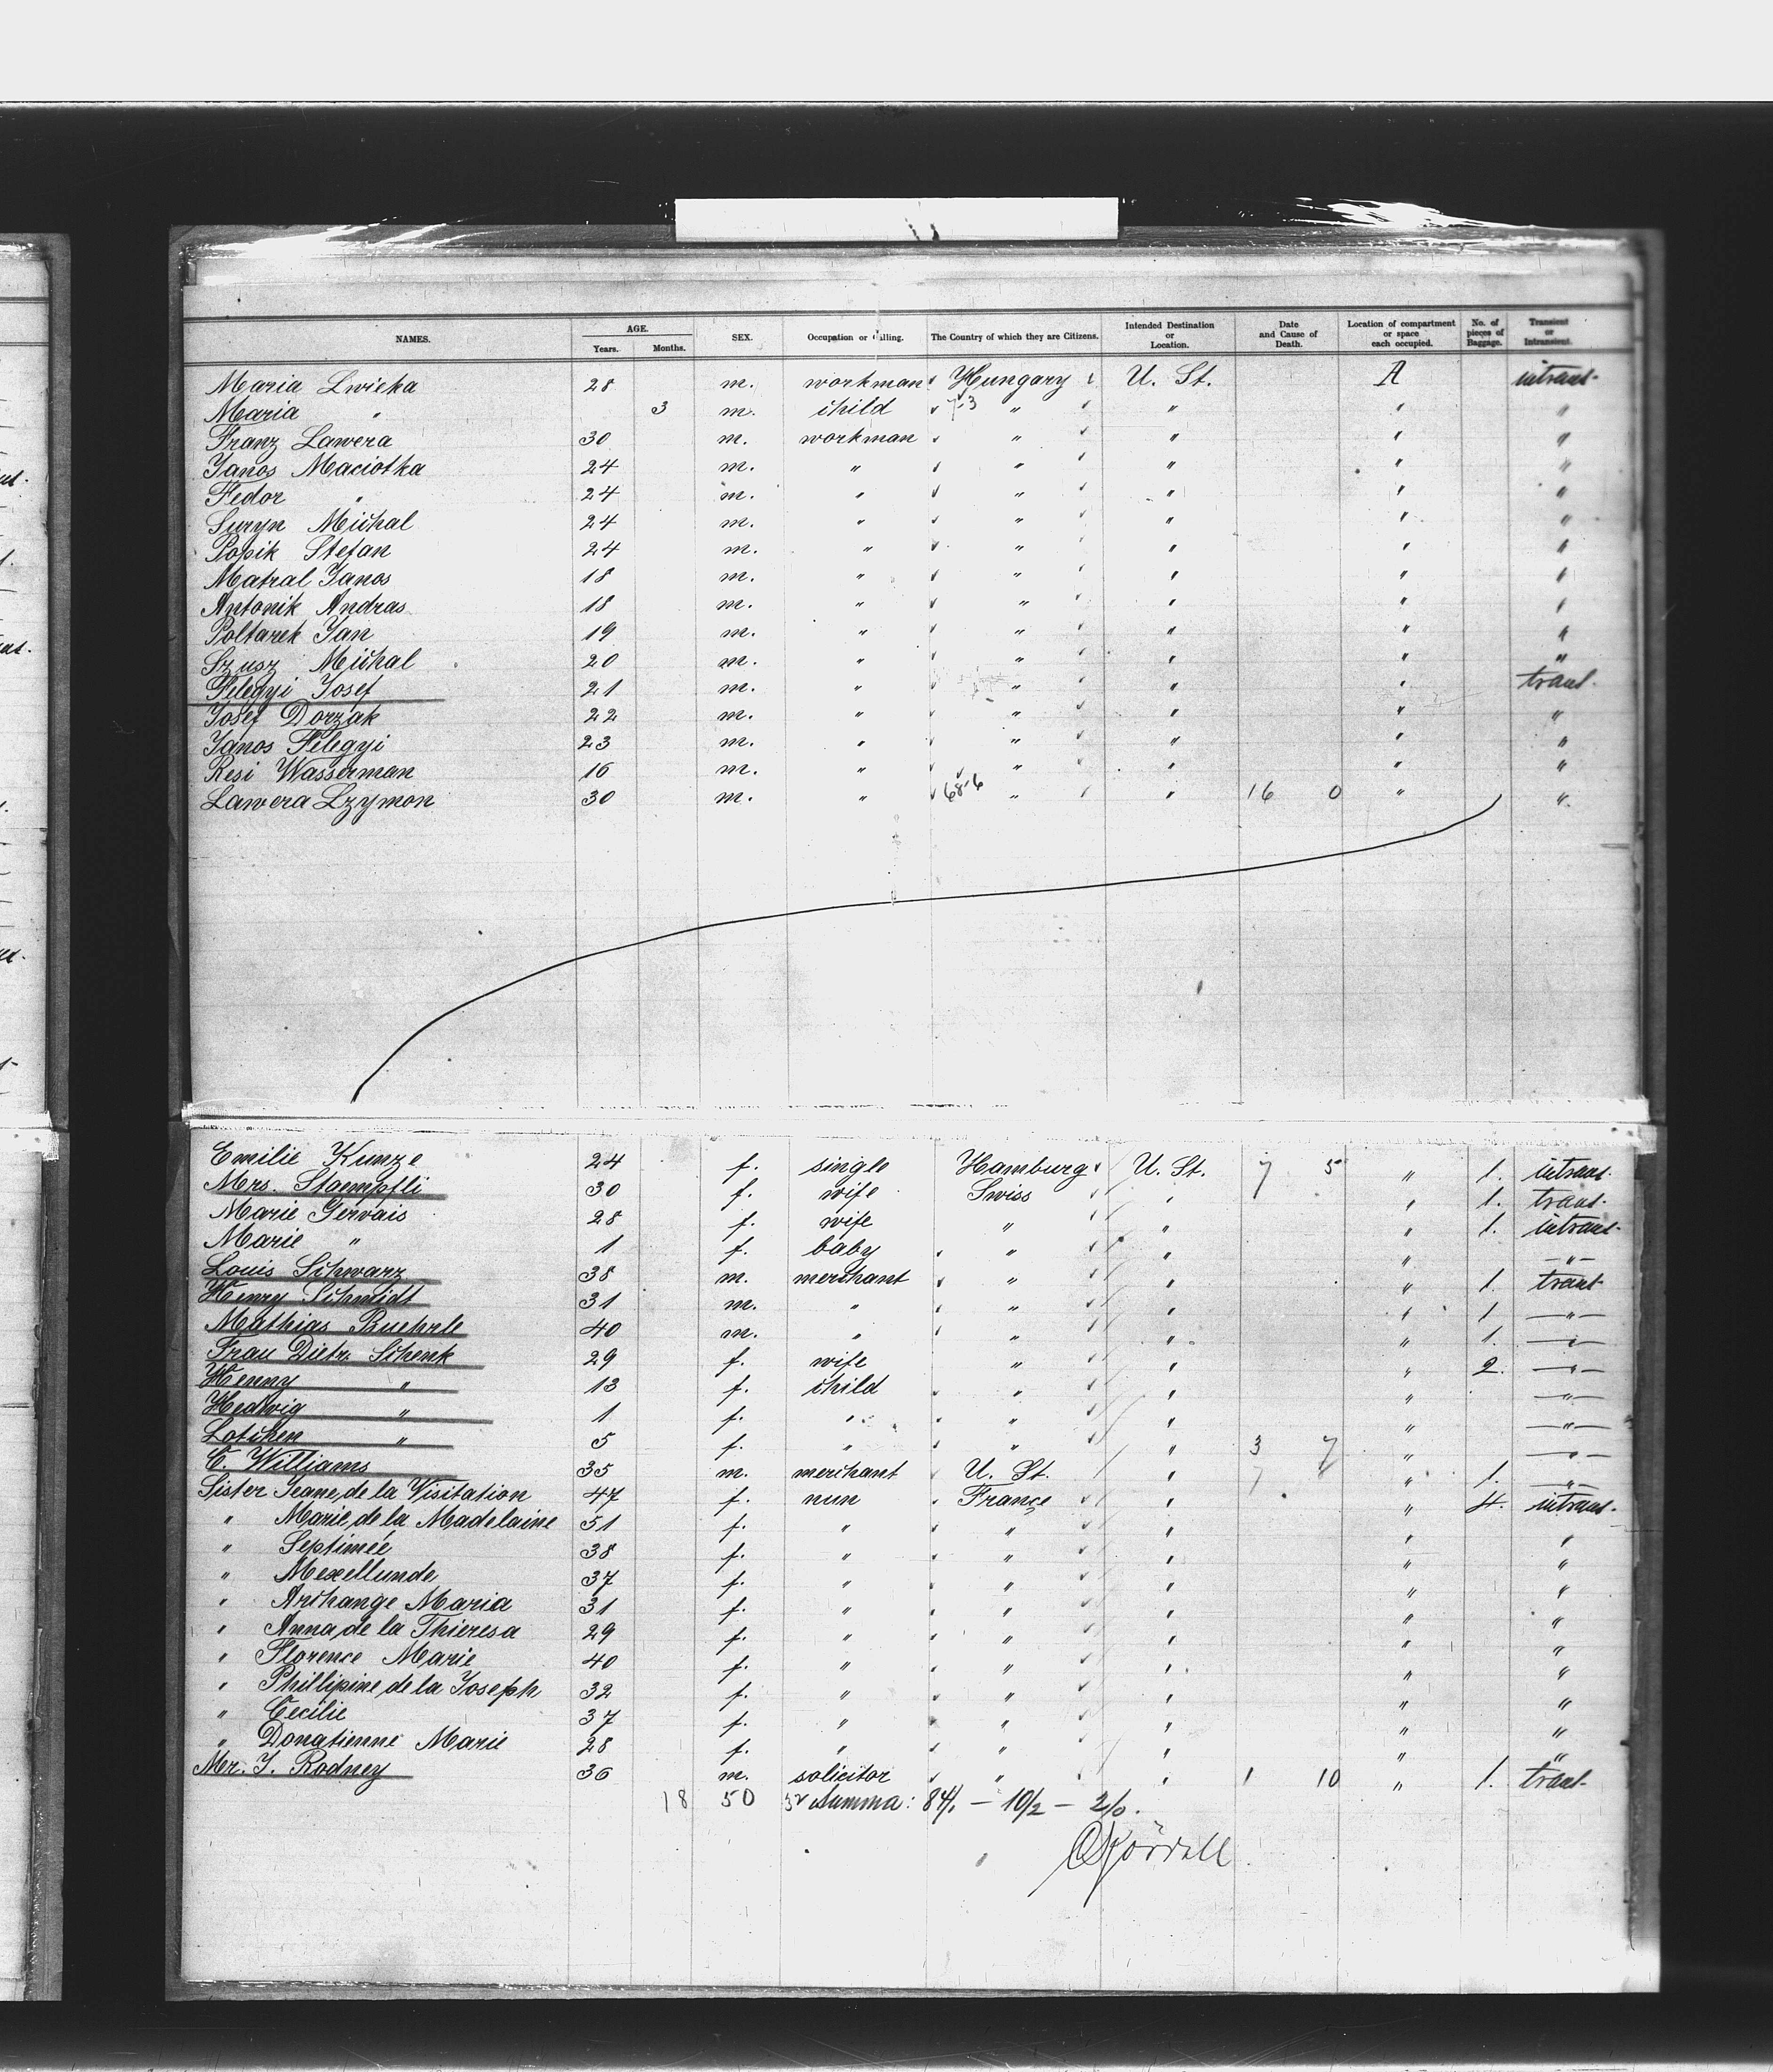 NAMES. AGE. Years. Months. SEX. Occupation or Calling. The Country of which they are Citizens. Intended Destination or Location. Date and Cause of Death. Location of compartment or space each occupied. No. of pieces of Baggage. Transient or Intransient.
Maria Lwicka 28 m. workman Hungary U. St. A intrans-
Maria " 3 m. child 7-3 " " " "
Franz Lawera 30 m. workman " " " "
Janos Maciotka 24 m. " " " " "
Fedor " 24 m. " " " " "
Suryn Michal 24 m. " " " " "
Popik Stefan 24 m. " " " " "
Matral Janos 18 m. " " " " "
Antonik Andras 18 m. " " " " "
Poltarek Jan 19 m. " " " " "
Szusz Michal 20 m. " " " " "
Felegyi Josef 21 m. " " " " trant-
Josef Dorzak 22 m. " " " " "
Janos Felegyi 23 m. " " " " "
Resi Wasserman 16 m. " " " " "
Lawera Szymon 30 m. " 68-6 " " 16 0 " "
Emilie Kunze 24 f. single Hamburg U. St. 7 5 " 1. intrans-
Mrs. Staempfli 30 f. wife Swiss " " 1. trant-
Marie Gervais 28 f. wife " " " 1. intrans-
Marie " 1 f. baby " " " "
Louis Schwarz 38 m. merchant " " " 1. trant
Henry Schmidt 31 m. " " " " 1 "
Mathias Buehrle 40 m. " " " " 1. "
Frau Dietr. Schenk 29 f. wife " " " 2. "
Henny " 13 f. child " " " "
Hedwig " 1 f. " " " " "
Lotchen " 5 f. " " " 3 7 " "
C. Williams 35 m. merchant U. St. " " 1. "
Sister Jeane, de la Visitation 47 f. nun France " " 4. intrans-
" Marie, de la Madelaine 51 f. " " " " "
" Septimée 38 f. " " " " "
" Mexellunde 37 f. " " " " "
" Archange Maria 31 f. " " " " "
" Anna, de la Thieresa 29 f. " " " " "
" Florence Marie 40 f. " " " " "
" Phillipine, de la Joseph 32 f. " " " " "
" Cecilie 37 f. " " " " "
" Donatienne Marie 28 f. " " " " "
Mr. J. Rodney 36 m. solicitor " " 1 10 " 1. trant-
18 50 32 Summa: 84/1 - 10/2 - 2/0.